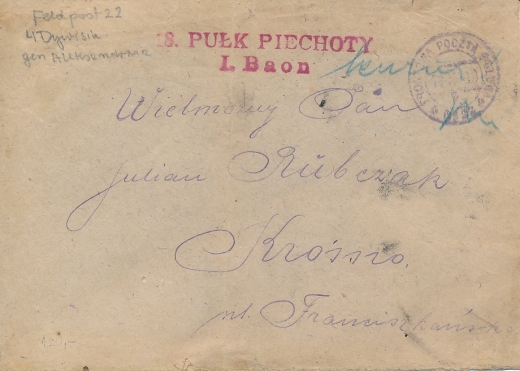 Feldpost 22
4 Dywisia
gen Aleksandrowicz
18. PUŁK PIECHOTY
I. Baon
POCZTA
Wielmożny Pan
Julian Rübczak
Krosno.
ul. Franciszkańska